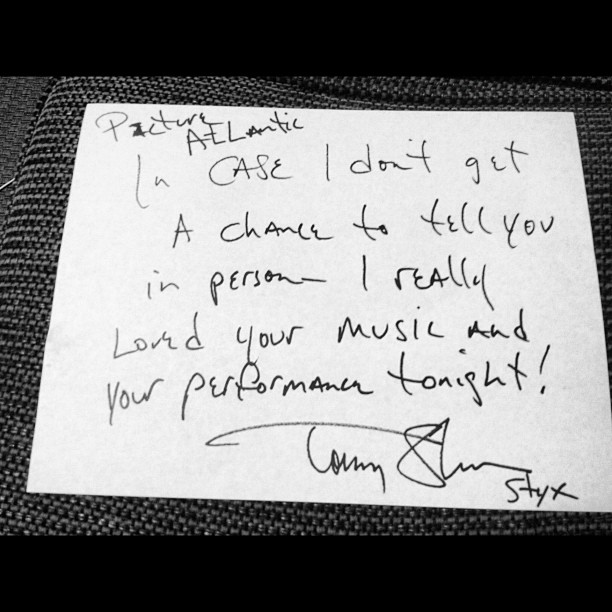 Picture
Atlantic
In CASE I don't get
A chance to tell you
in person I really
Loved your music and
your performance tonight!
Tommy Shaw
Styx